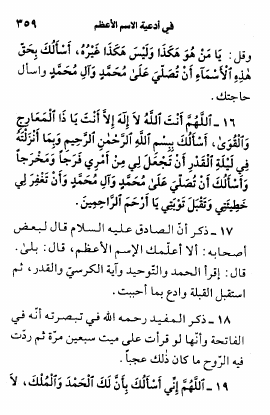 في أدعية الاسم الأعظم ٣٥٩
وقل: يَا مَنْ هُوَ هَكَذَا وَلَيْسَ هَكَذَا غَيْرُهُ، أَسْأَلُكَ بِحَقِّ
هٰذِهِ الْأَسْمَآءِ أَنْ تُصَلِّيَ عَلَىٰ مُحَمَّدٍ وَآلِ مُحَمَّدٍ واسأل
حاجتك.
١٦ ـ اَللّٰهُمَّ أَنْتَ اللّٰهُ لَا إِلٰهَ إِلَّا أَنْتَ يَا ذَا الْمَعَارِجِ
وَالْقُوَىٰ، أَسْأَلُكَ بِبِسْمِ اللّٰهِ الرَّحْمٰنِ الرَّحِيمِ وَبِمَا أَنْزَلْتَهُ
فِي لَيْلَةِ الْقَدْرِ أَنْ تَجْعَلَ لِي مِنْ أَمْرِي فَرَجاً وَمَخْرَجاً
وَأَسْأَلُكَ أَنْ تُصَلِّيَ عَلَىٰ مُحَمَّدٍ وَآلِ مُحَمَّدٍ وَأَنْ تَغْفِرَ لِي
خَطِيئَتِي وَتَقْبَلَ تَوْبَتِي يَا أَرْحَمَ الرَّاحِمِينَ.
١٧ ـ ذكر أنّ الصادق عليه السلام قال لبعض
أصحابه: ألا أعلّمك الإسم الأعظم، قال: بلىٰ.
قال: إقرأ الحمد والتوحيد وآية الكرسيّ والقدر، ثم
استقبل القبلة وادع بما أحببت.
١٨ ـ ذكر المفيد رحمه الله في تبصرته أنّه في
الفاتحة وأنّها لو قرأت على ميت سبعين مرّة ثم ردّت
فيه الرّوح ما كان ذلك عجباً.
١٩ ـ اَللّٰهُمَّ إِنِّي أَسْأَلُكَ بِأَنَّ لَكَ الْحَمْدَ وَالْمُلْكَ، لَا